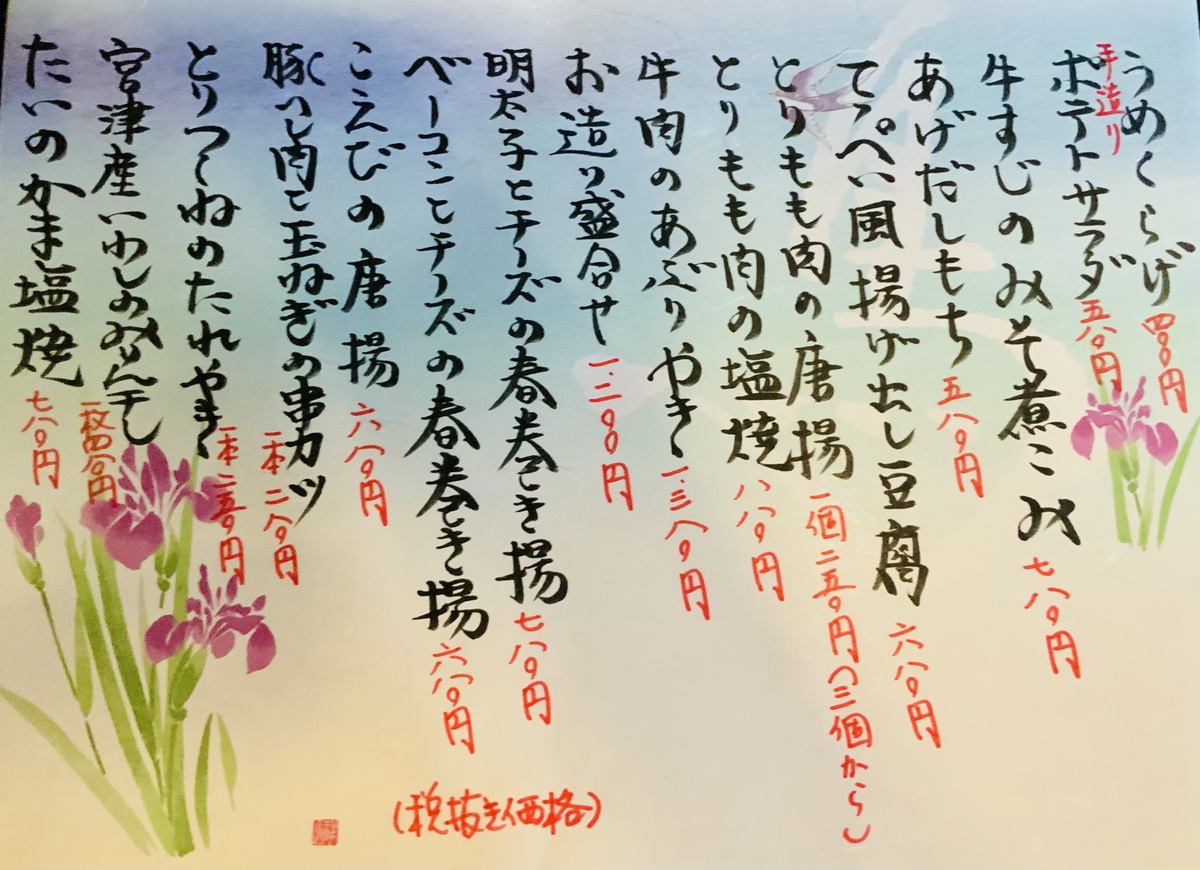 うめくらげ 四八〇円
手造り
ポテトサラダ 五八〇円
牛すじのみそ煮こみ 七八〇円
あげだしもち 五八〇円
てっぺい風揚げ出し豆腐 六八〇円
とりもも肉の唐揚 一個二五〇円(三個から)
とりもも肉の塩焼 八八〇円
牛肉のあぶりやき 一、三八〇円
お造り盛合せ 一、二〇〇円
明太子とチーズの春巻き揚 七八〇円
ベーコンとチーズの春巻き揚 六八〇円
こえびの唐揚 六八〇円
豚バラ肉と玉ねぎの串カツ 一本二八〇円
とりつくねのたれやき 一本二五〇円
宮津産いわしのみりん干し 一枚四〇〇円
たいのかま塩焼 七八〇円
(税抜き価格)